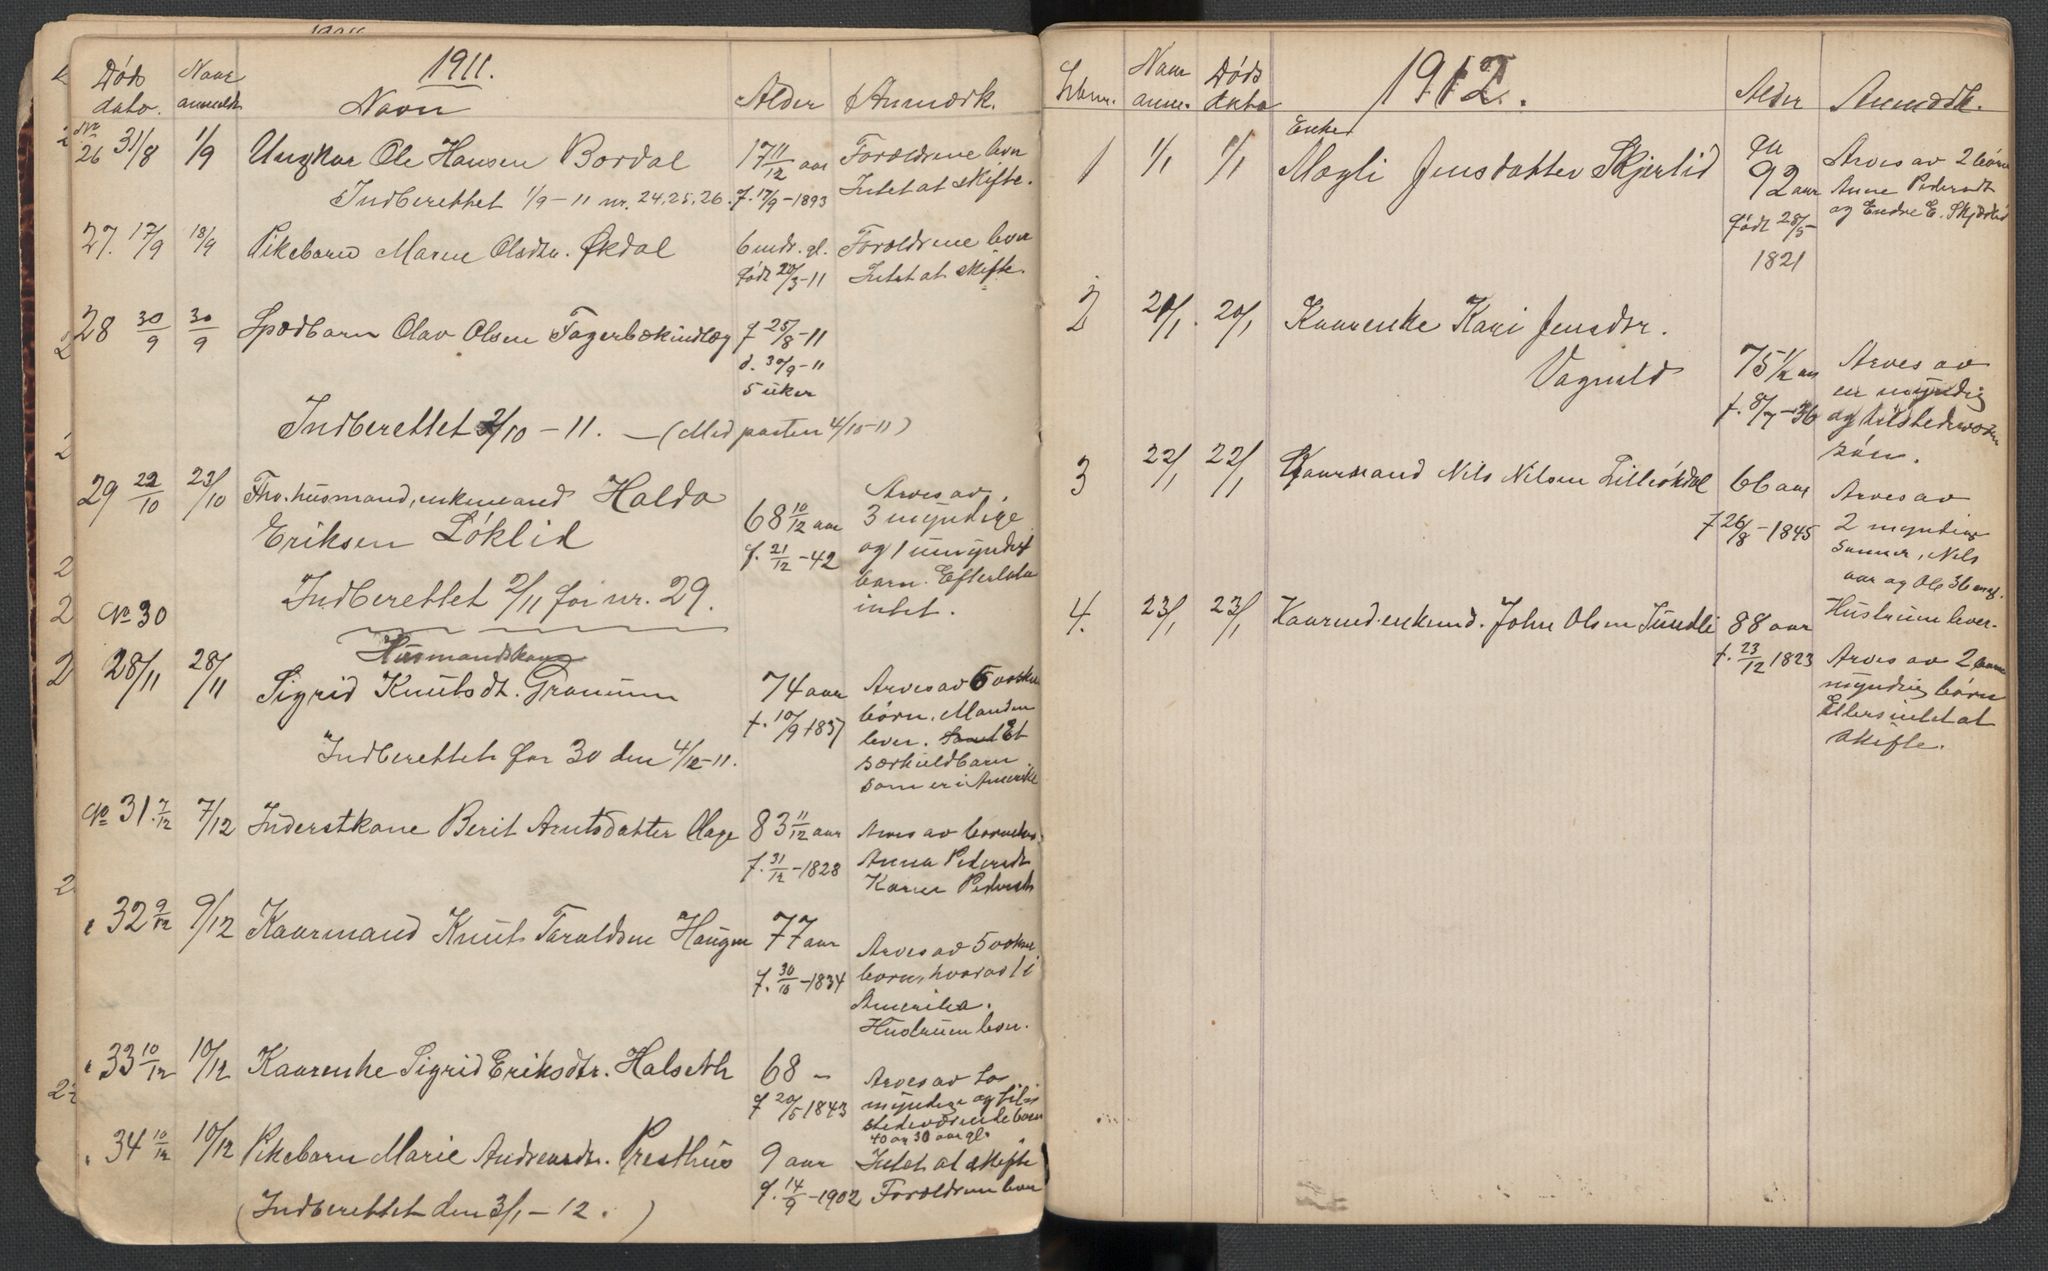 1911.
Døds dato. Naar anmeldt Navn Alder Anmærk.
No 26 31/8 1/9 Ungkar Ole Hansen Bordal 17 11/12 aar Forældrene lever
Indberettet 1/9-11 nr. 24, 25, 26. f. 17/9-1893 Intet at skifte.
27. 17/9 18/9 Pikebarn Maren Olsdtr. Økdal 6 mdr. gl. Forældrene lever
født 20/3-11 Intet at skifte.
28 30/9 30/9 Spædbarn Olav Olsen Fagerbækindlæg f 25/8-11
d. 30/9-11
5 uker
Indberettet 2/10-11. - (Med posten 4/10-11)
29 22/10 23/10 Fhv. husmand, enkemand Haldo 68 10/12 aar Arves av
Eriksen Løklid f. 21/12-42 3 myndige
og 1 umyndigt
barn. Efterlater
intet.
Indberettet 2/11 for nr. 29.
No 30
Husmandskone
28/11 28/11 Sigrid Knutsdt. Granum 74 aar Arves av 5 voksne
f. 10/9 1837 børn. Manden
lever. Samt Et
særkuldbarn
som er i Amerika
Indberettet for 30 den 4/12-11.
No 31. 7/12 7/12 Inderstkone Berit Arntsdatter Hage 83 11/12 aar Arves av
f. 31/12-1828 Anna Pedersdt
Karen Pedersdt
32 9/12 9/12 Kaarmand Knut Taraldsen Haugen 77 aar Arves av 5 voksne
f. 30/10-1834 børn, hvorav 1 i
Amerika.
Hustruen lever.
33 10/12 10/12 Kaarenke Sigrid Eriksdtr. Halseth 68 - Arves av to
f 20/5 1843 myndige og til-
stedeværende børn
40 og 30 aar gl.
34 10/12 10/12 Pikebarn Marie Andreasdtr. Presthus 9 aar Intet at skifte
f. 14/9-1902 Forældrene lever
(Indberettet den 3/1-12.)
1912.
Løbenr. Naar anm. Døds dato Alder Anmærk.
Enke
1 1/1 1/1 Magli Jensdatter Skjerlid 92 aar Arves av 2 børn
født 28/5- Anne Pedersdt
1821 og Endre E. Skjærlid
2 20/1. 20/1 Kaarenke Kari Jensdtr.
Vagnild 75 1/2 aar Arves av
f. 8/7-36 en myndig
og tilstedeværen
søn.
3 22/1 22/1 Kaarmand Nils Nilsen Lilleøkdal 66 aar Arves av
f 26/8-1845 2 myndige
sønner, Nils
aar og Ole 36 aar gl.
Hustruen lever.
4. 23/1 23/1 Kaarmd. enkemd. John Olsen Sundli 88 aar
f. 23/12 1823 Arves av 2
myndig børn
Ellers intet at
skifte.